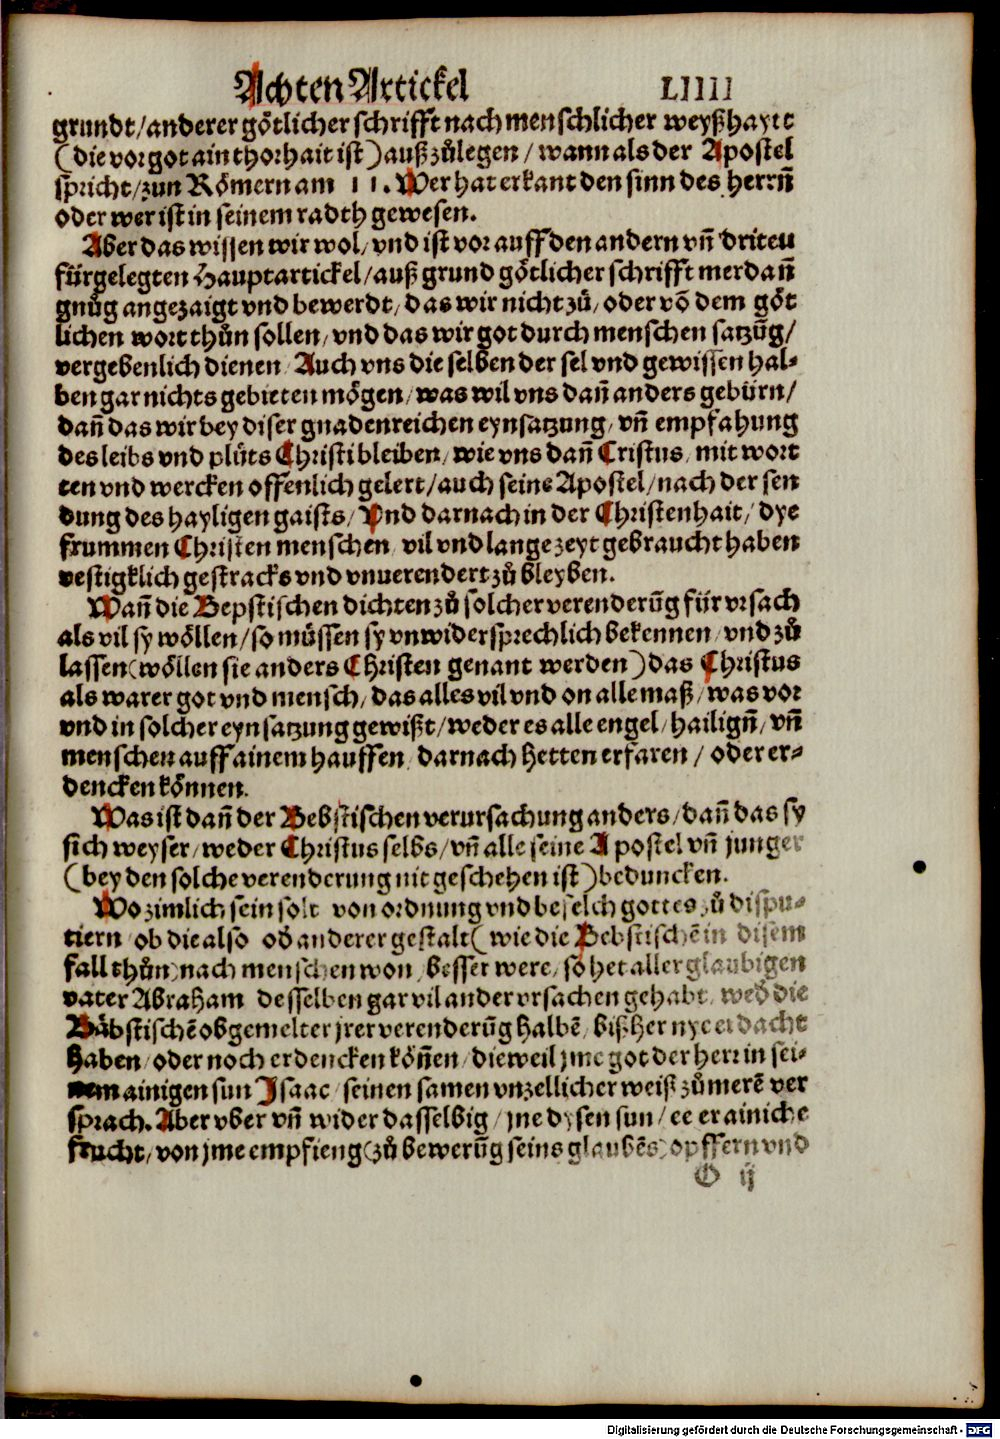 Achten Artickel LIIII
grundt/ anderer götlicher schrifft nach menschlicher weyßhaytt
(die vor got ain thorhait ist) außzůlegen / wann als der Apostel
spricht/ zun Römern am 11. Wer hat erkant den sinn des herrn̄
oder wer ist in seinem radth gewesen.
Aber das wissen wir wol/ vnd ist vor auff den andern vn̄ driteu
fürgelegten Hauptartickel/ auß grund götlicher schrifft mer dan̄
gnůg angezaigt vnd bewerdt/ das wir nicht zů/ oder vō dem göt
lichen wort thůn sollen/ vnd das wir got durch menschen satzūg/
vergebenlich dienen/ Auch vns die selben der sel vnd gewissen hal-
ben gar nichts gebieten mögen/ was wil vns dan̄ anders gebürn/
dan̄ das wir bey diser gnadenreichen eynsatzung/ vn̄ empfahung
des leibs vnd plůts Christi bleiben/ wie vns dan̄ Cristus/ mit wort
ten vnd wercken offenlich gelert/ auch seine Apostel/ nach der sen
dung des hayligen gaists/ Vnd darnach in der Christenhait/ dye
frummen Christen menschen/ vil vnd lange zeyt gebraucht haben
vestigklich gestracks vnd vnuerendert zů bleyben.
Wan̄ die Bepstischen dichten zů solcher verenderūg für vrsach
als vil sy wöllen/ so müssen sy vnwidersprechlich bekennen/ vnd zů
lassen (wöllen sie anders Christen genant werden) das Christus
als warer got vnd mensch/ das alles vil vnd on alle maß/ was vor
vnd in solcher eynsatzung gewißt/ weder es alle engel/ hailign̄/ vn̄
menschen auff ainem hauffen/ darnach hetten erfaren / oder er-
dencken können.
Was ist dan̄ der Bebstischen verursachung anders/ dan̄ das sy
sich weyser/ weder Christus selbs/ vn̄ alle seine Apostel vn̄ junger
(bey den solche verenderung nit geschehen ist) beduncken.
Wo zimlich sein solt von ordnung vnd beselch gottes zů dispu-
tiern/ ob die also ob anderer gestalt (wie die Bebstischē in disem
fall thůn) nach menschen won/ besser were/ so het aller glaubigen
vater Abraham desselben gar vil ander vrsachen gehabt/ wed̄ die
Bäbstischē obgemelter jrer verenderūg halbē/ bißher nye erdacht
haben/ oder noch erdencken kön̄en/ dieweil jme got der herr in sei-
nem ainigen sun Isaac/ seinen samen vnzellicher weiß zů merē ver
sprach. Aber vber vn̄ wider dasselbig/ jne dysen sun/ ee er ainiche
frucht/ von jme empfieng (zů bewerūg seins glaubēs) opffern vnd
O ij
Digitalisierung gefördert durch die Deutsche Forschungsgemeinschaft - DFG